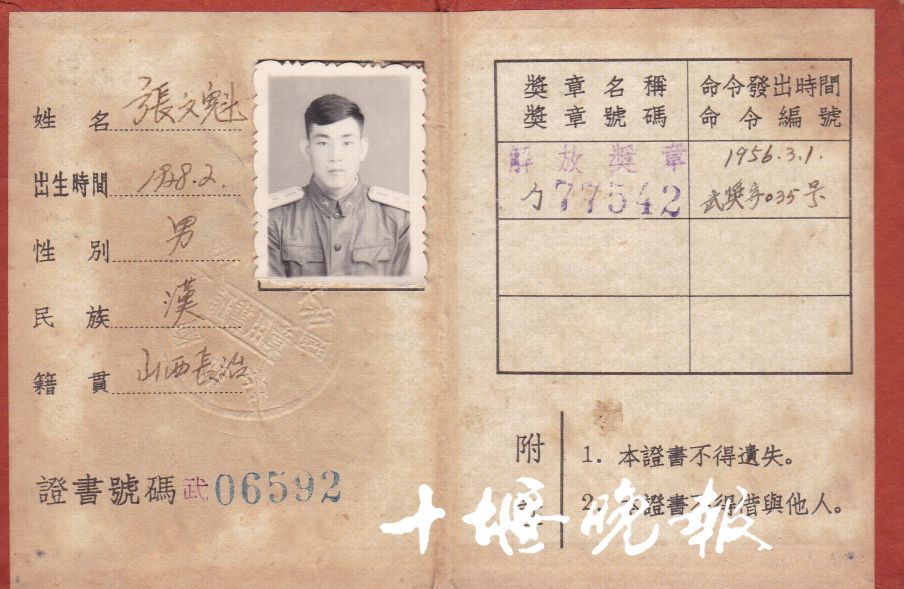 姓名 張文魁
出生時間 1928.2.
性別 男
民族 漢
籍貫 山西長治
證書號碼 武 06592
獎章名稱 命令發出時間
獎章號碼 命令編號
解放獎章 1956.3.1.
77542 武獎字035号
附
1. 本證書不得遺失。
2. 本證書不得借與他人。
十堰晚報